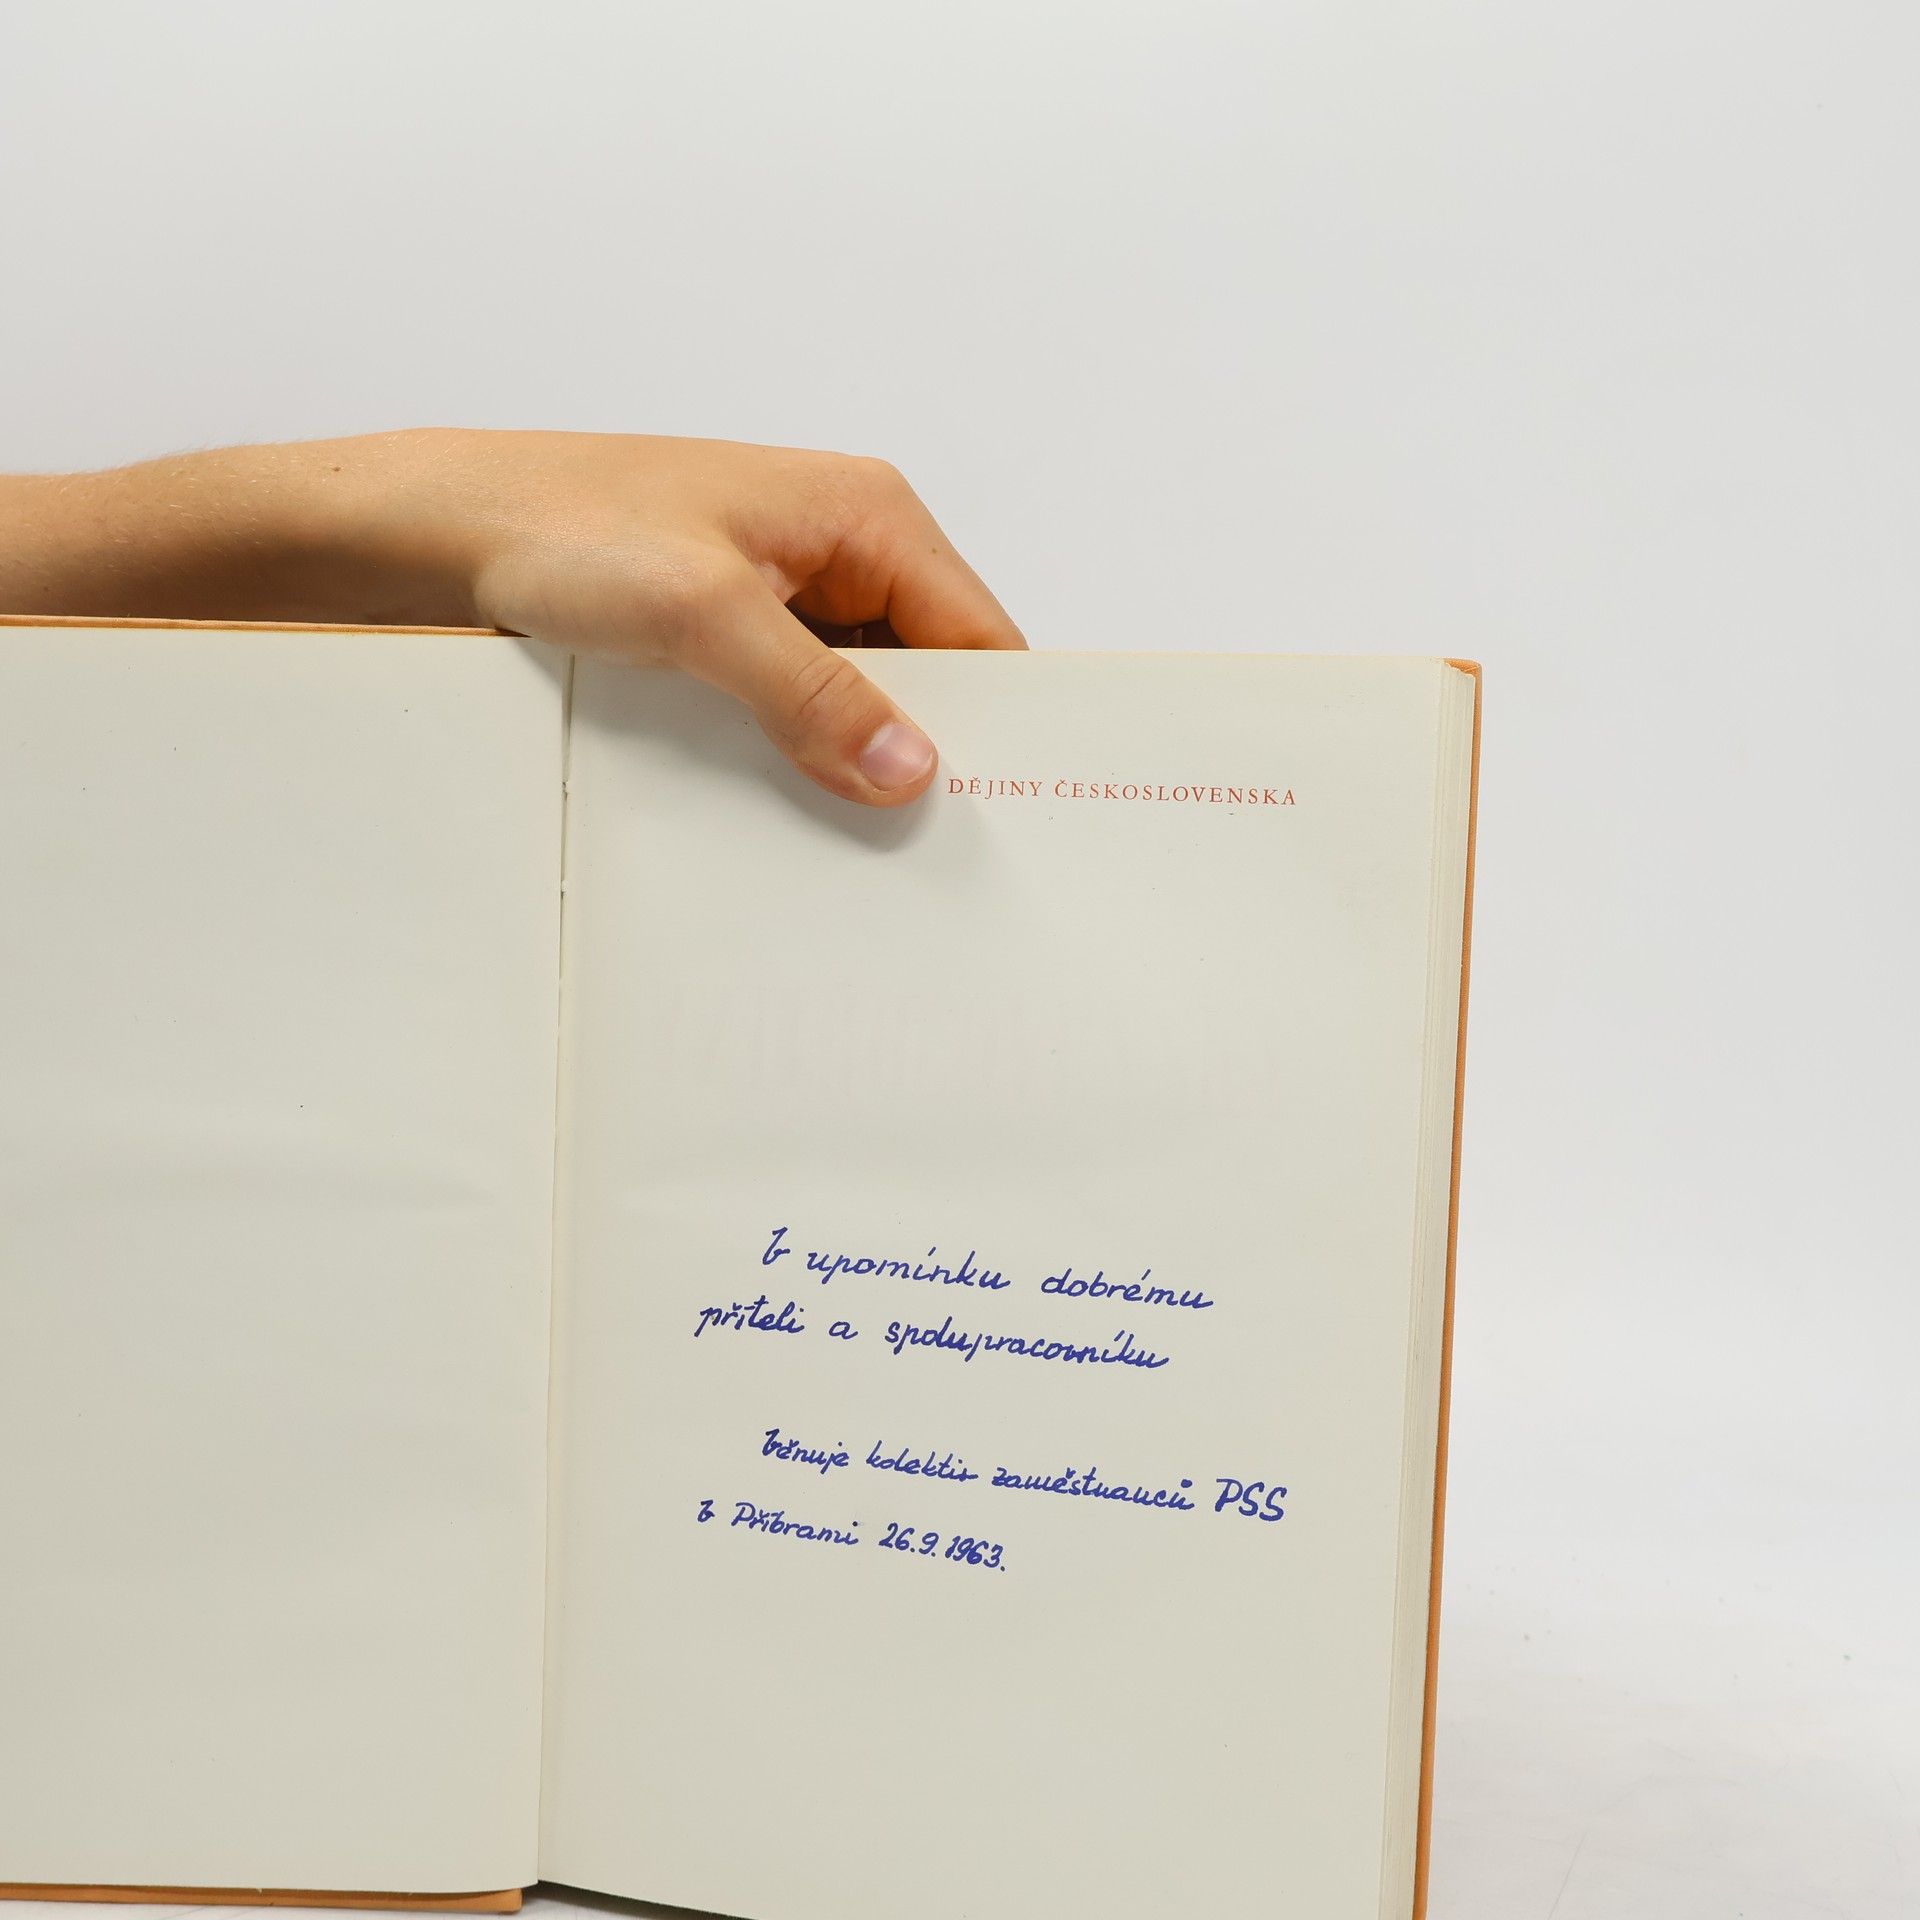 DĚJINY ČESKOSLOVENSKA
V upomínku dobrému
příteli a spolupracovníku
Věnuje kolektiv zaměstnanců PSS
V Příbrami 26.9.1963.